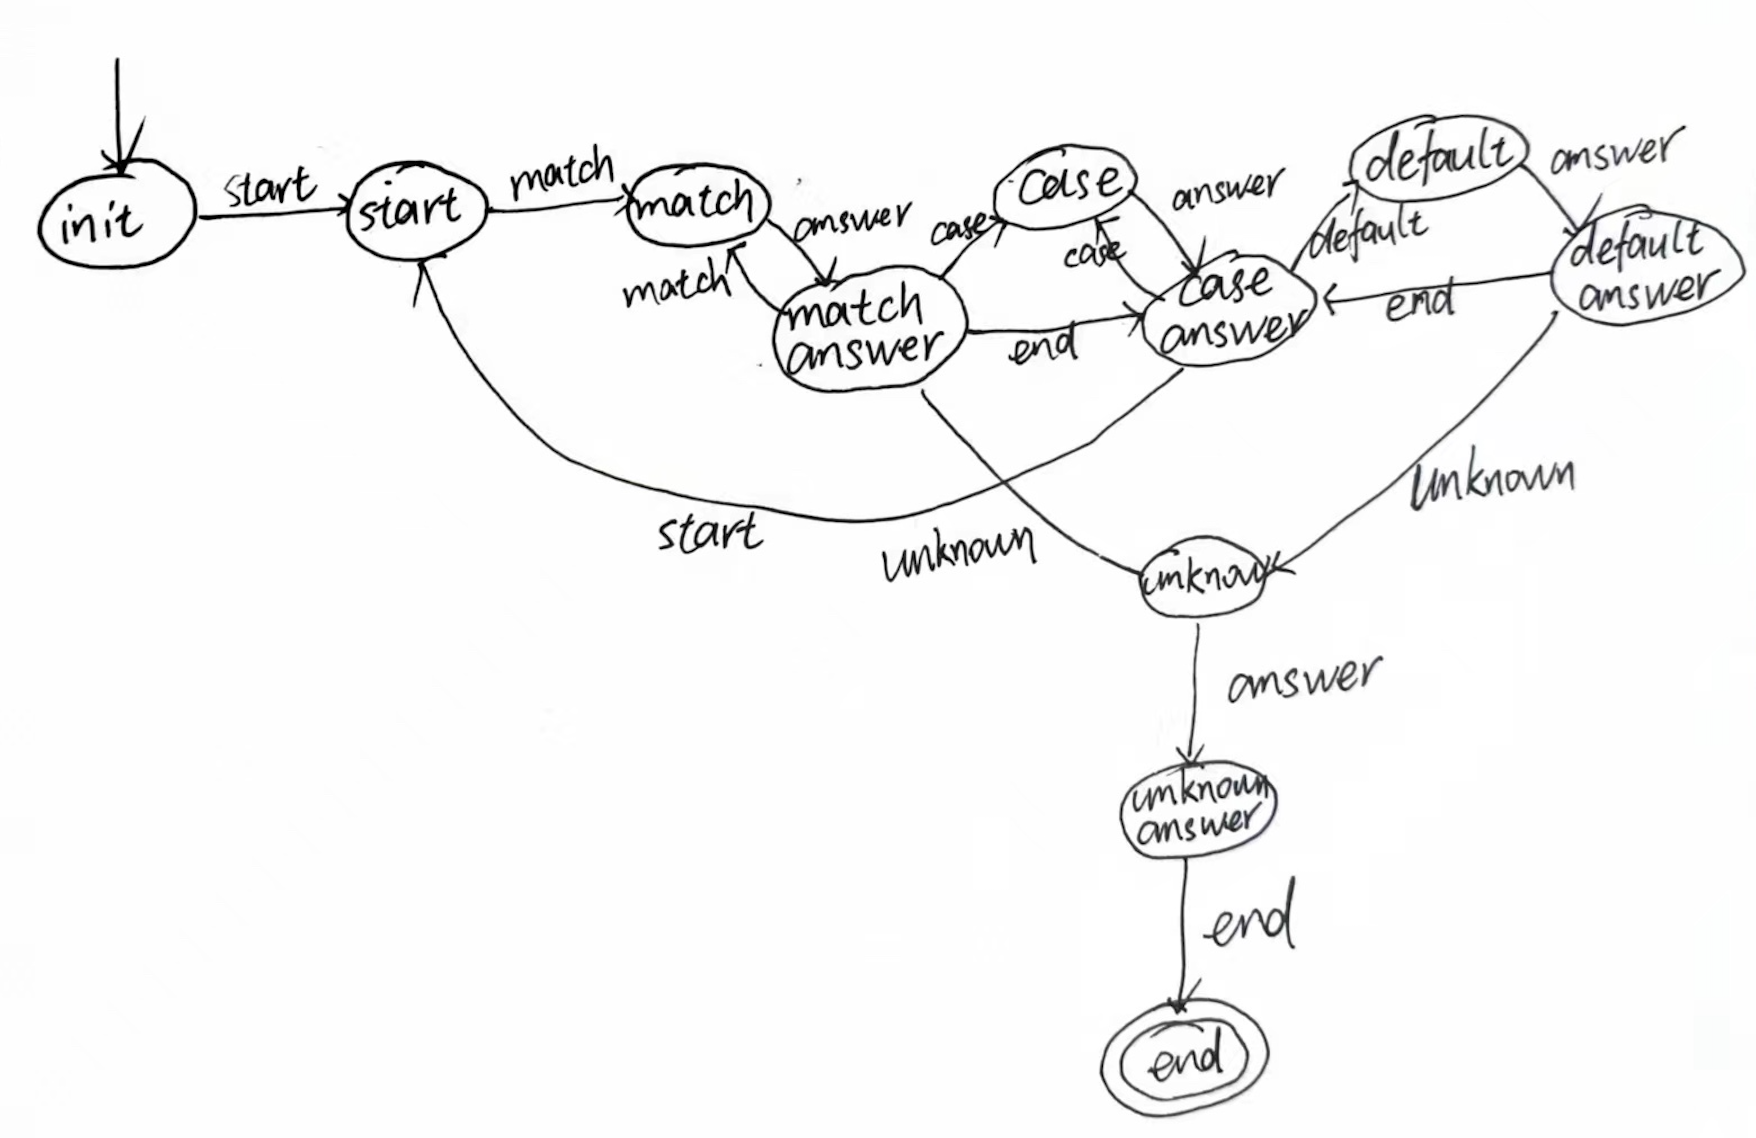 init
start
start
match
match
answer
match
match
answer
case
case
case
answer
end
case
answer
default
default
answer
default
answer
end
start
unknown
unknown
unknow
answer
unknown
answer
end
end